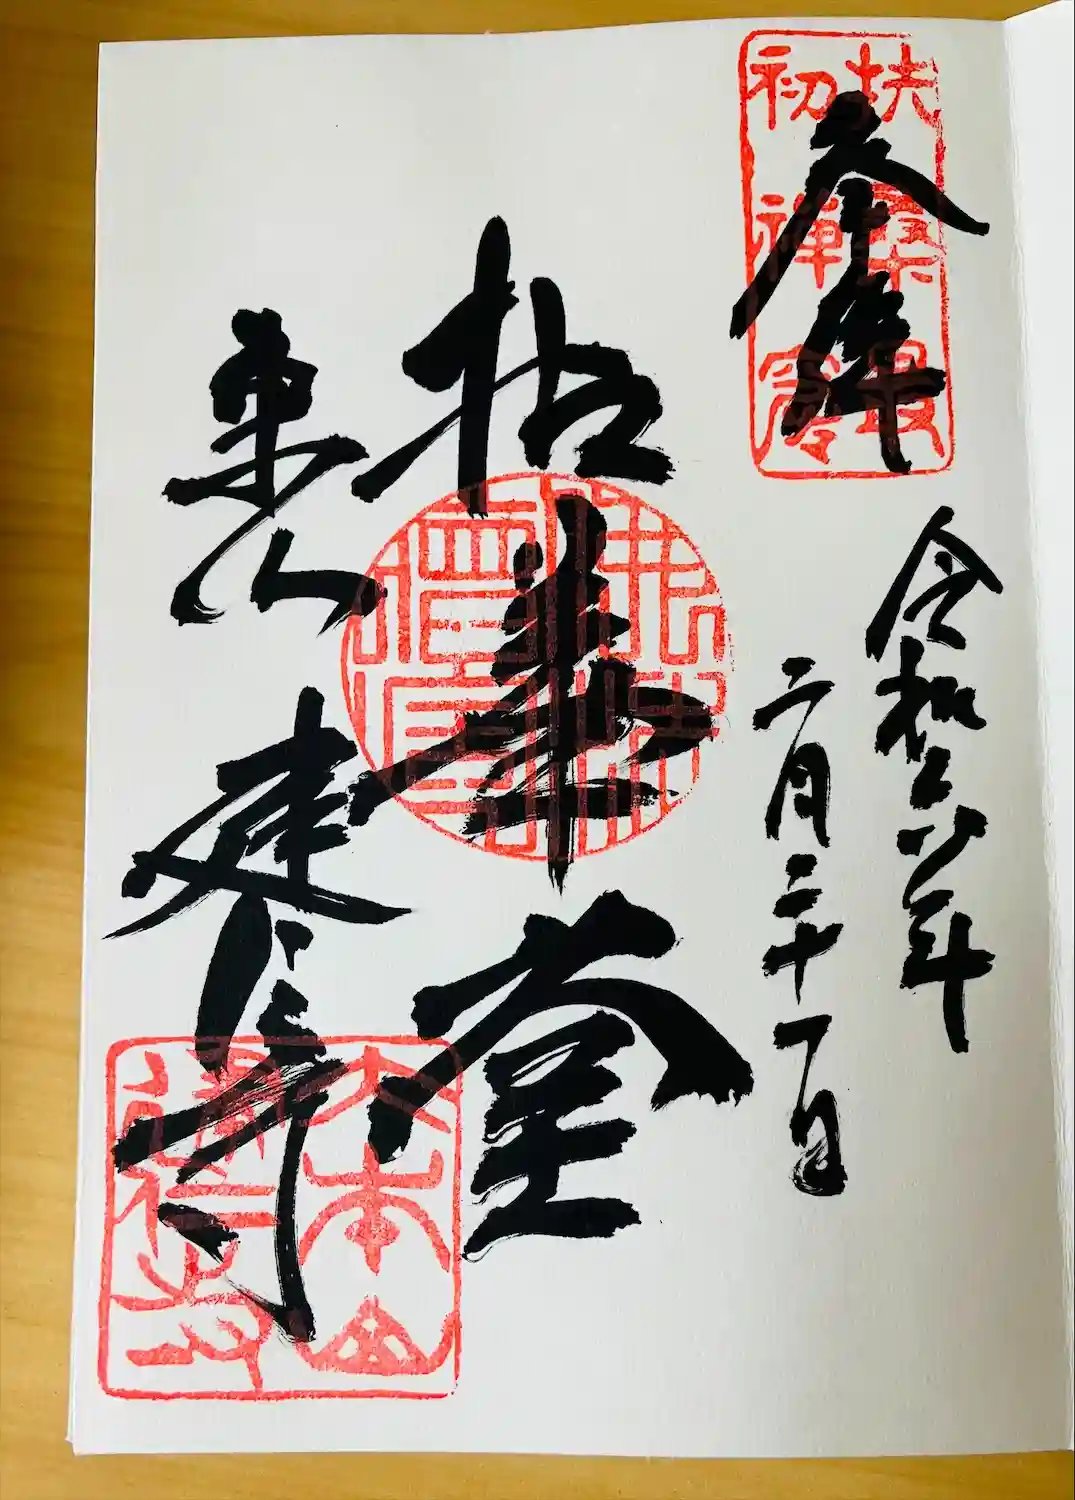 扶桑最
初禪窟
奉拝
令和六年
二月二十一日
拈華堂
東山
建仁寺
大本山
建仁寺